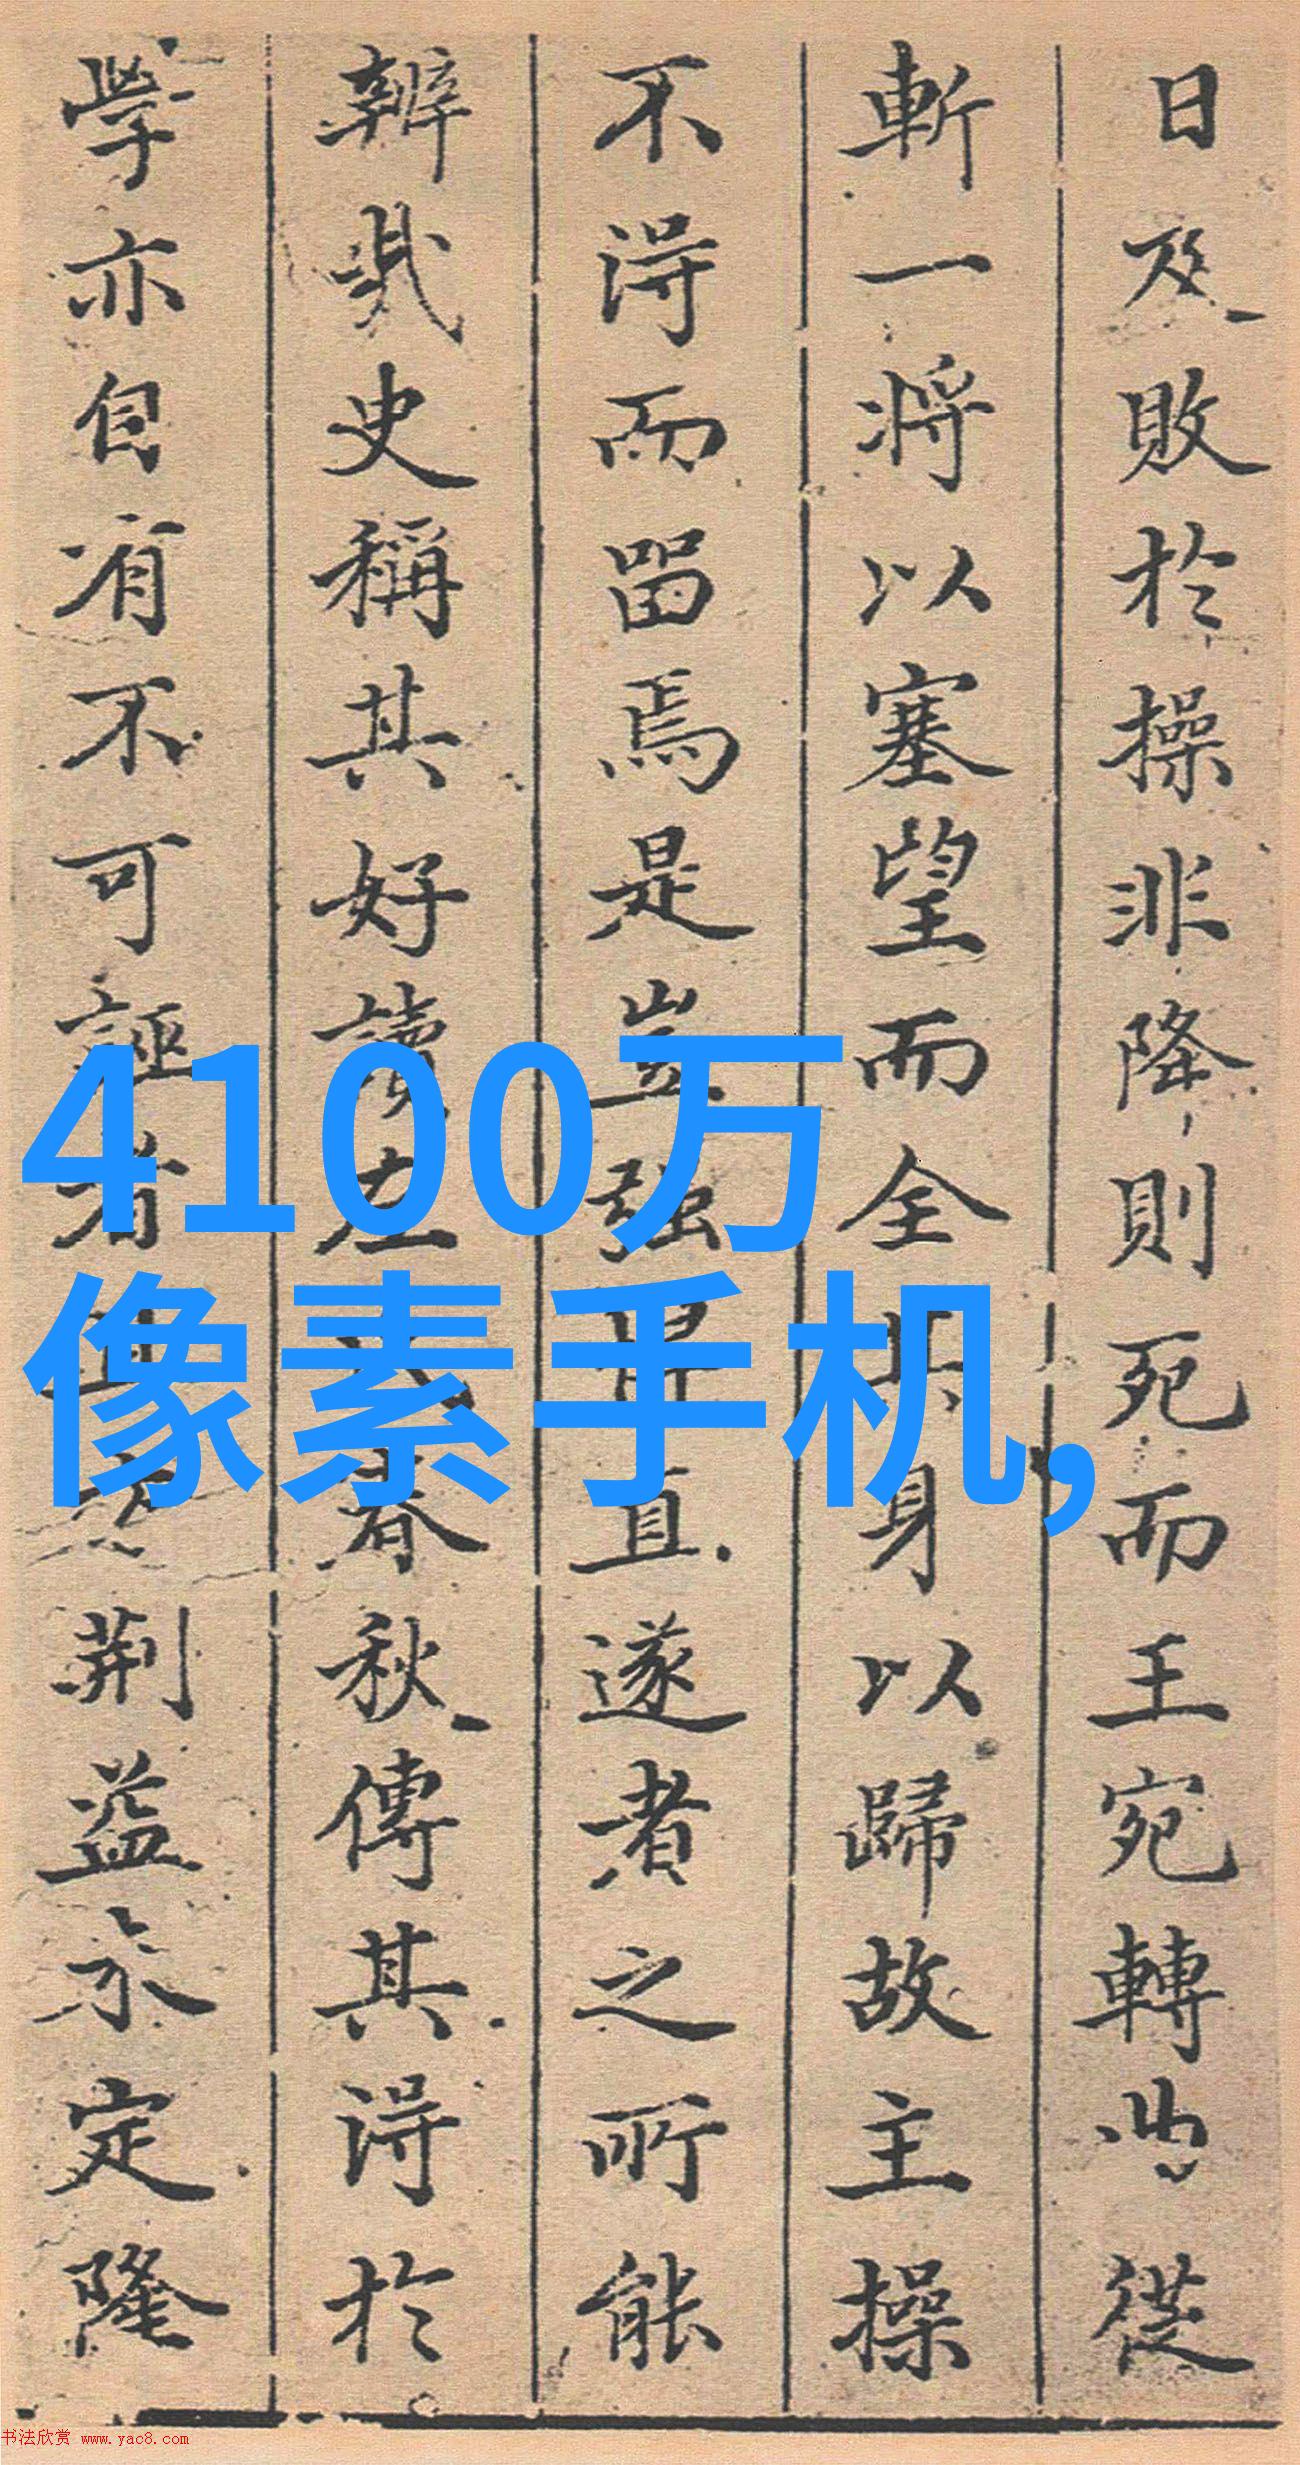 日及敗於操非降則死而王宛轉曲從
斬一将以塞望而全其身以歸故主操
不得而留焉是豈强悍直遂者之所能
辨哉史稱其好讀左氏春秋傳其得於
學亦自有不可誣者
荆益亦定隆
4100万
像素手机,
书法欣赏 www.yac8.com